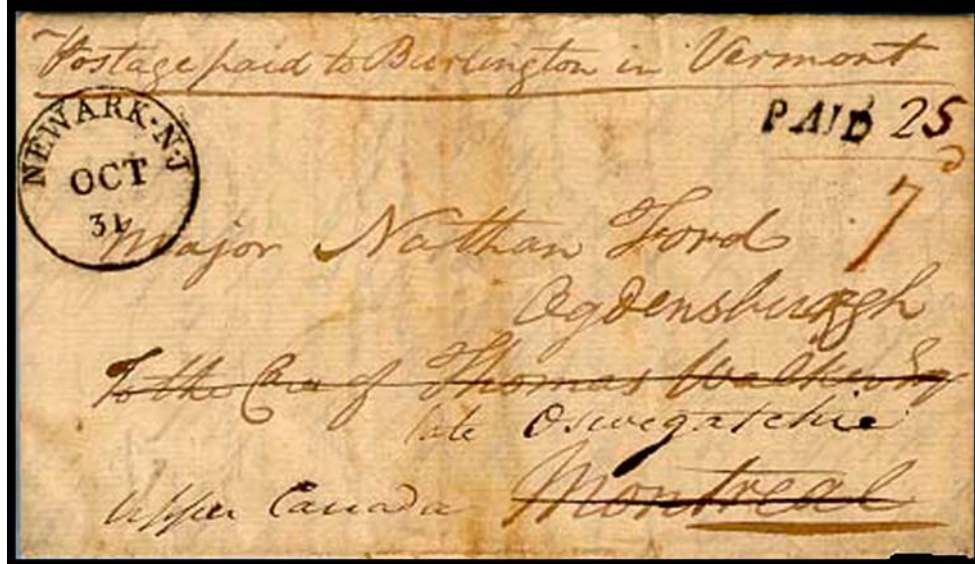 Postage paid to Burlington in Vermont
NEWARK·N·J
OCT
31
PAID 25
7
Major Nathan Ford
Ogdensburgh
To the Care of Thomas Walker Esq
late Oswegatchie
Upper Canada Montreal